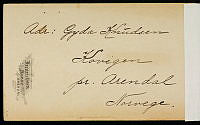 Adr: Gyda Knudsen
Kovigen
pr. Arendal
Norvege.